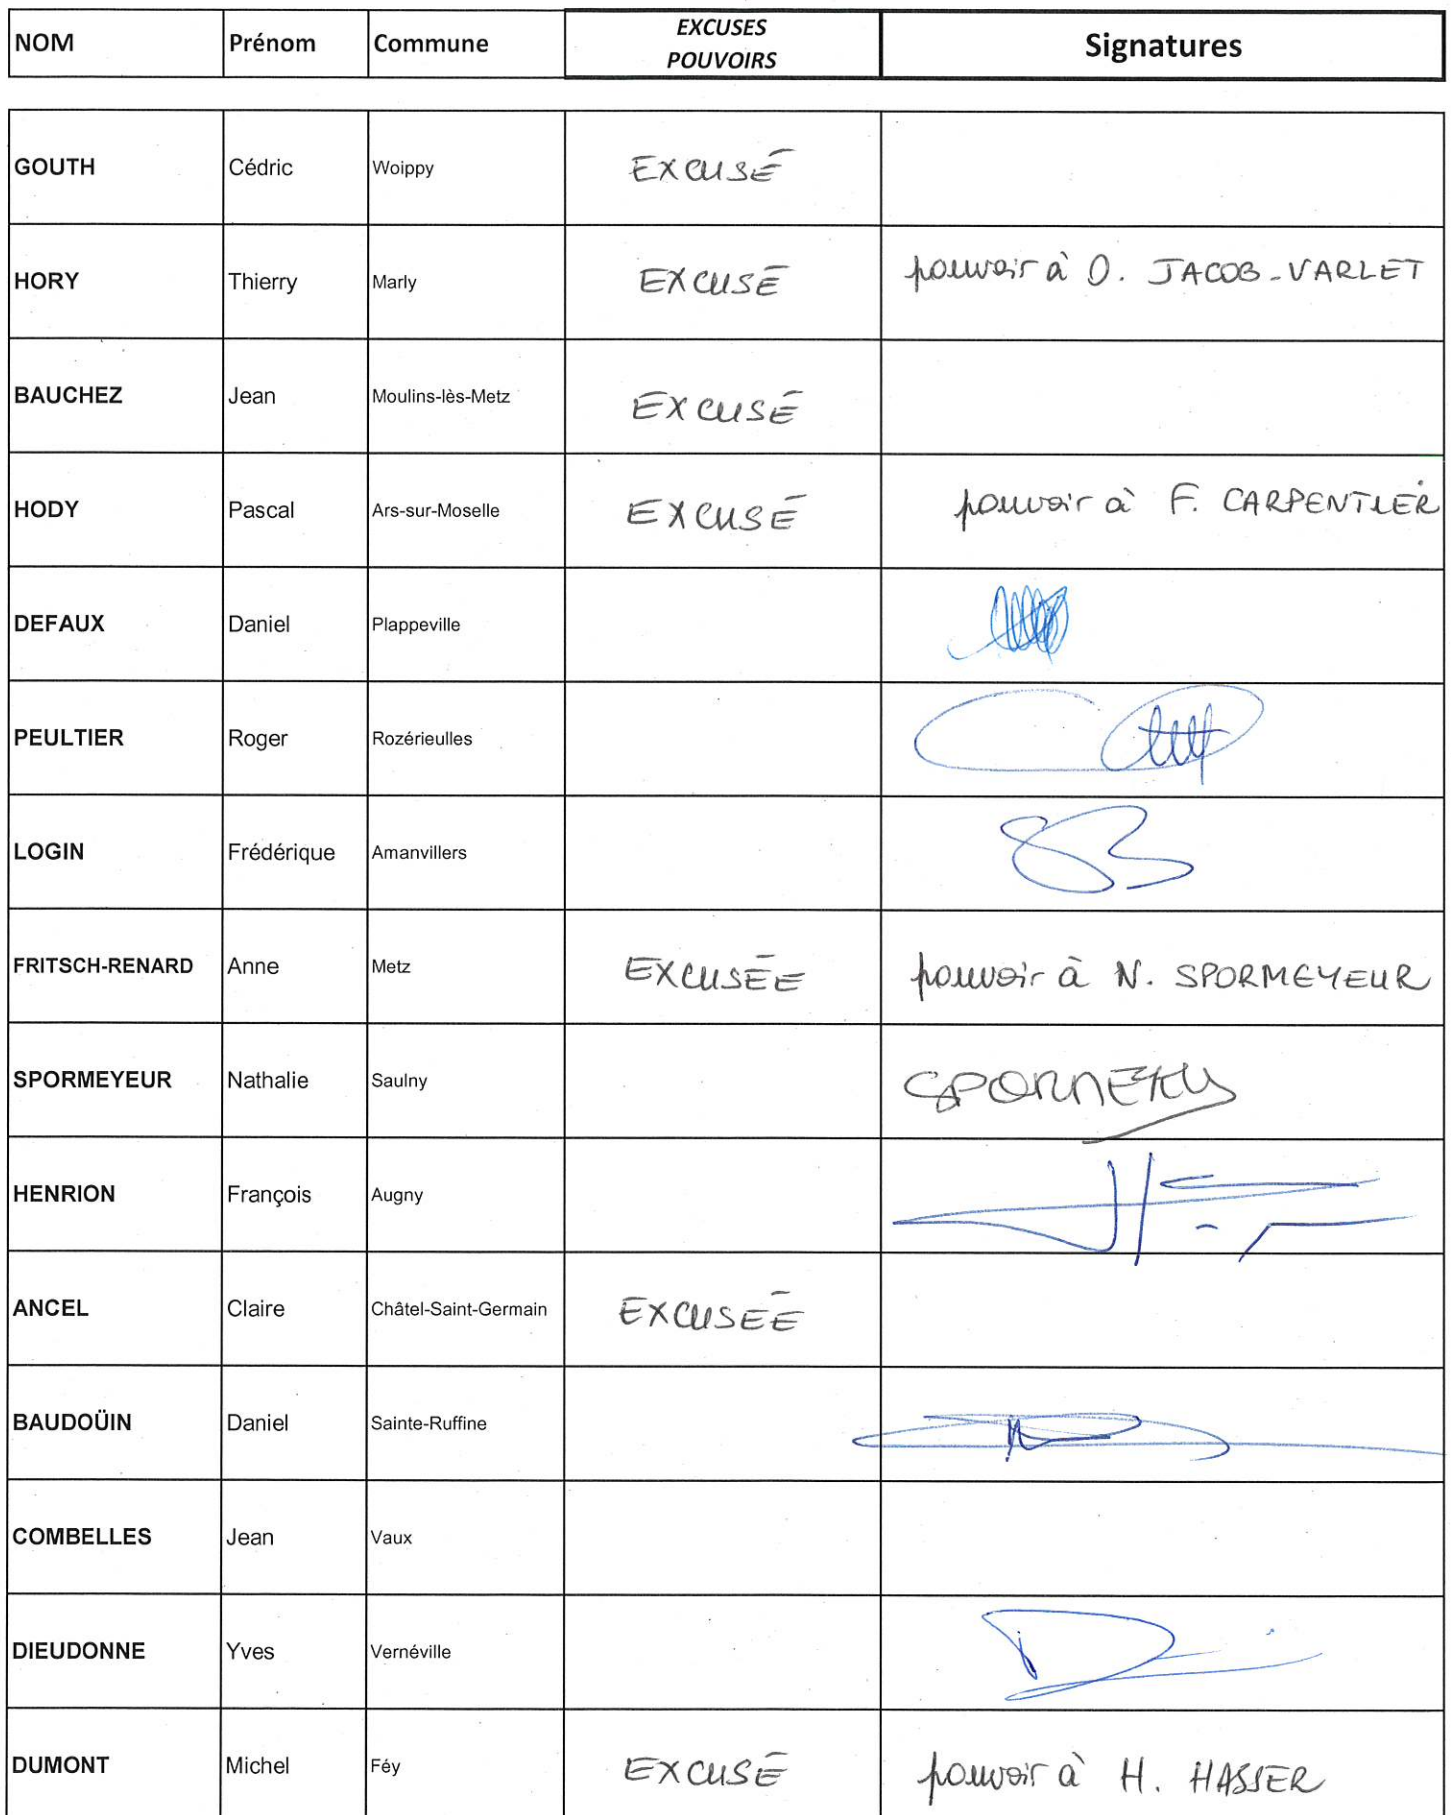 NOM Prénom Commune EXCUSES POUVOIRS Signatures
GOUTH Cédric Woippy EXCUSÉ
HORY Thierry Marly EXCUSÉ pouvoir à D. JACOB-VARLET
BAUCHEZ Jean Moulins-lès-Metz EXCUSÉ
HODY Pascal Ars-sur-Moselle EXCUSÉ pouvoir à F. CARPENTIER
DEFAUX Daniel Plappeville
PEULTIER Roger Rozérieulles
LOGIN Frédérique Amanvillers
FRITSCH-RENARD Anne Metz EXCUSÉE pouvoir à N. SPORMEYEUR
SPORMEYEUR Nathalie Saulny
HENRION François Augny
ANCEL Claire Châtel-Saint-Germain EXCUSEÉ
BAUDOÜIN Daniel Sainte-Ruffine
COMBELLES Jean Vaux
DIEUDONNE Yves Vernéville
DUMONT Michel Féy EXCUSÉ pouvoir à H. HASSER